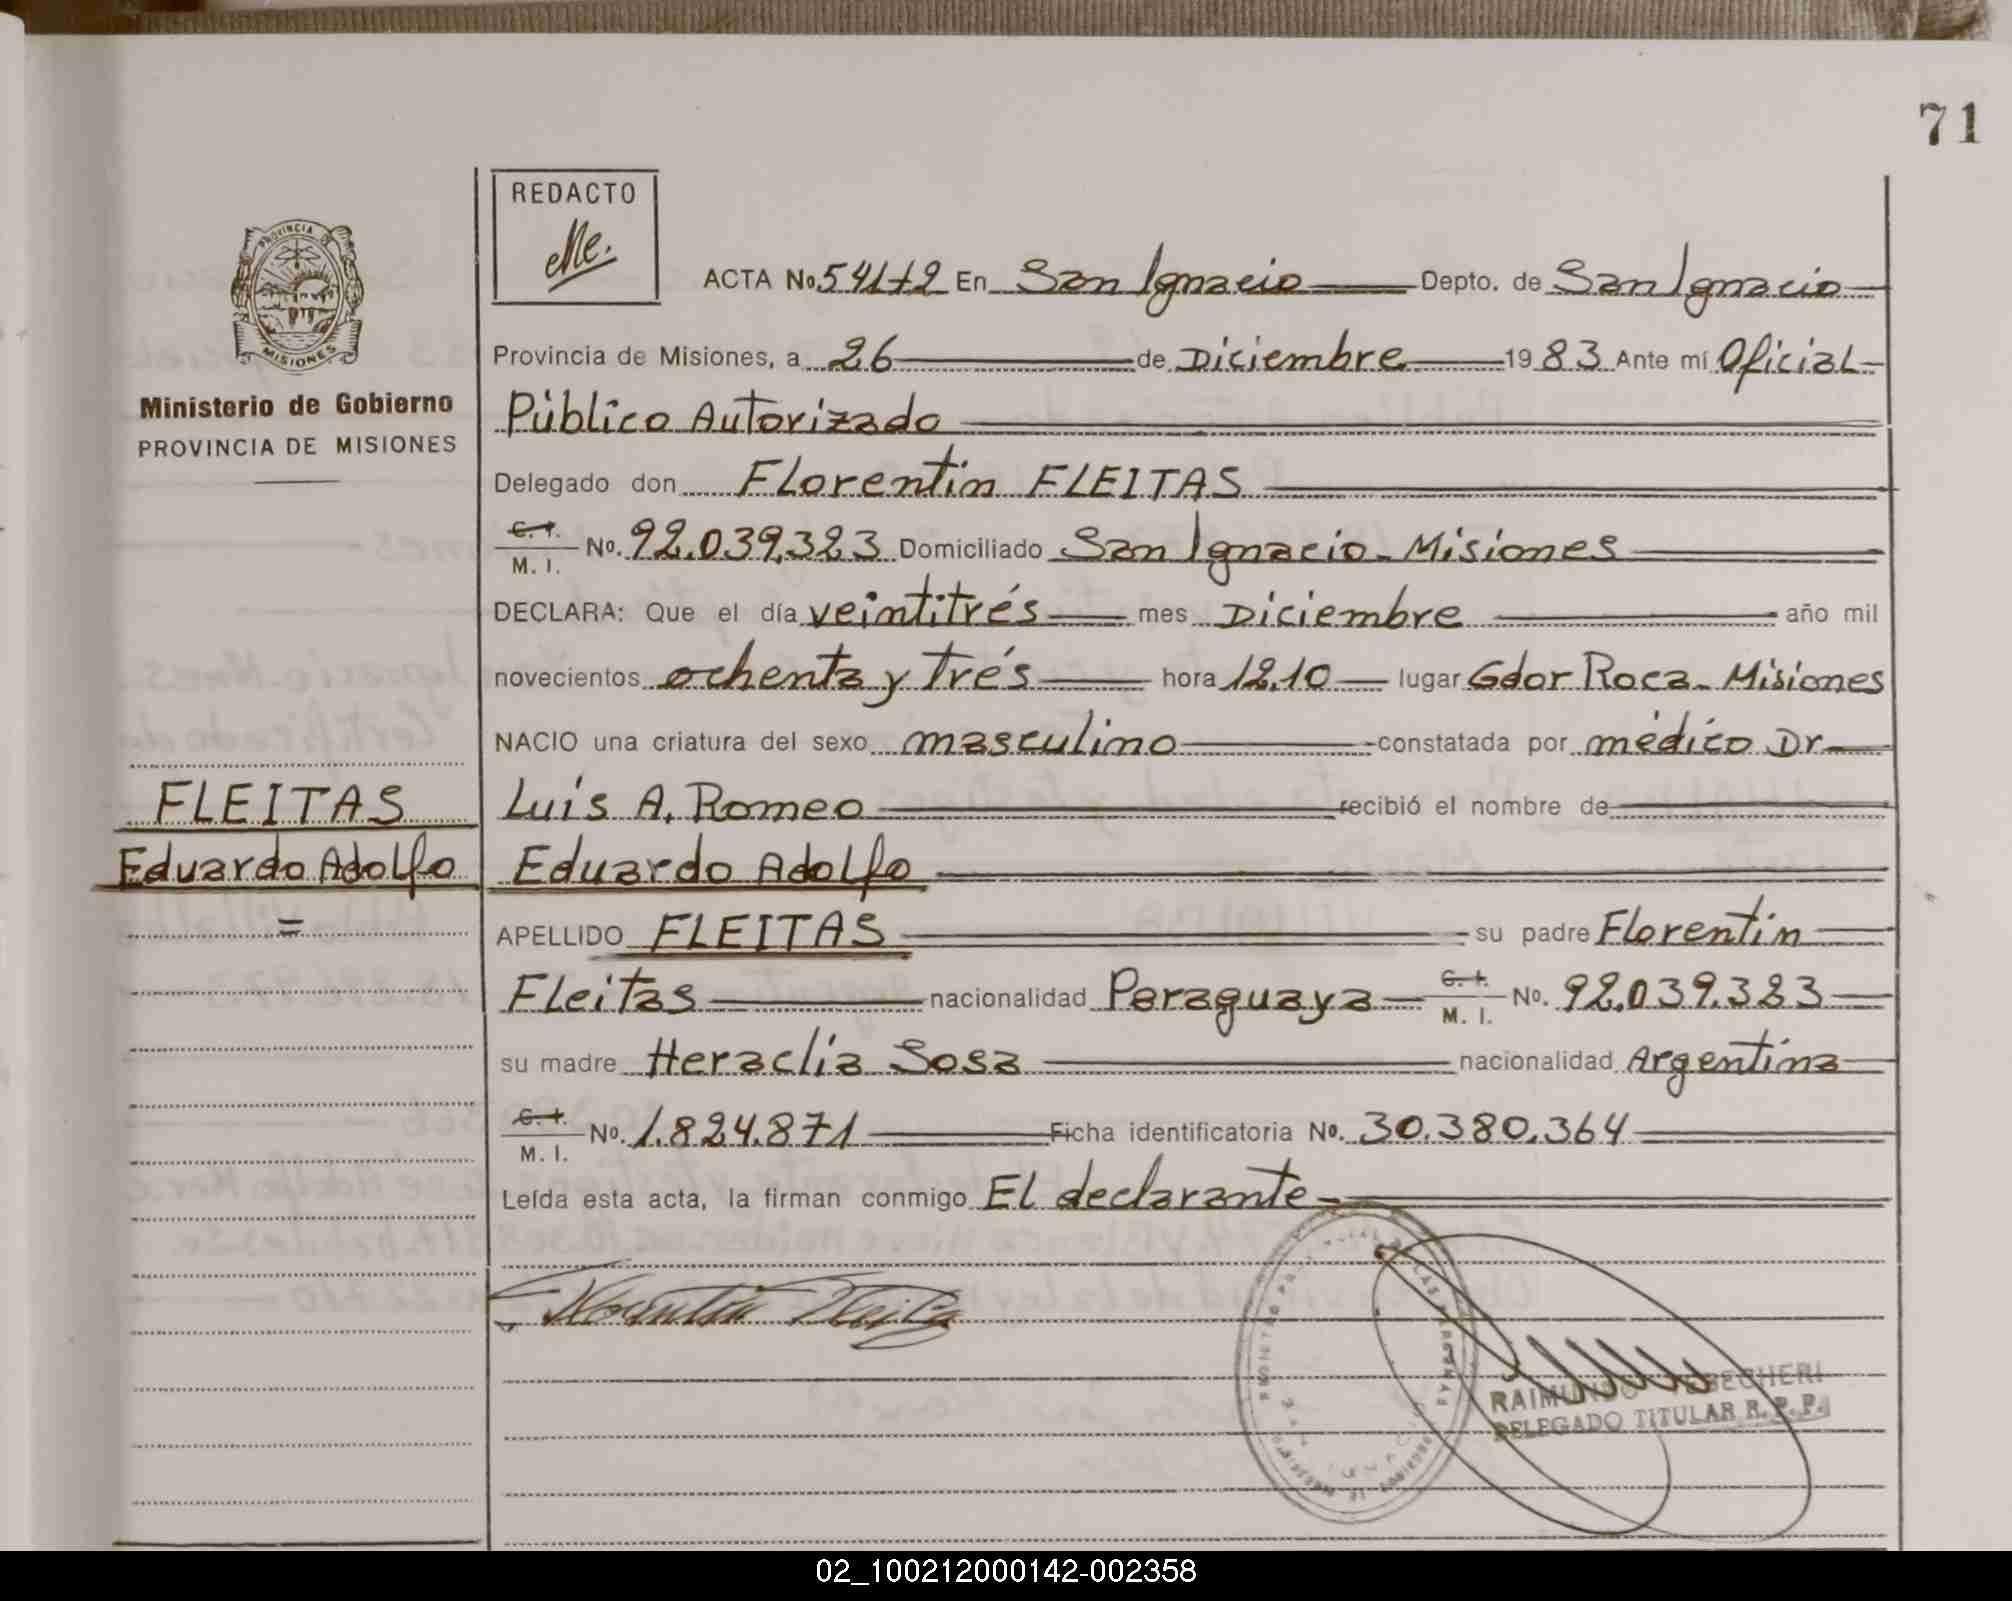 71
REDACTO
PROVINCIA DE
MISIONES
Ministerio de Gobierno
PROVINCIA DE MISIONES
ACTA No 541 t2 En San Ignacio Depto. de San Ignacio
Provincia de Misiones, a 26 de Diciembre 1983 Ante mí Oficial
Público Autorizado
Delegado don Florentin FLEITAS
C. I.
M. I.
No. 92.039.323 Domiciliado San Ignacio - Misiones
DECLARA: Que el día veintitrés mes Diciembre año mil
novecientos ochenta y trés hora 12,10 lugar Gdor Roca - Misiones
NACIO una criatura del sexo masculino constatada por médico Dr
Luis A. Romeo recibió el nombre de
FLEITAS
Eduardo Adolfo
=
Eduardo Adolfo
APELLIDO FLEITAS su padre Florentin
Fleitas nacionalidad Paraguaya C. I. M. I. No. 92.039.323
su madre Heraclia Sosa nacionalidad Argentina
C. I.
M. I.
No. 1.824.871 Ficha identificatoria No. 30.380.364
Leída esta acta, la firman conmigo El declarante
Florentin Fleitas
RAIMUNDO
DELEGADO TITULAR R. P. P.
02_100212000142-002358